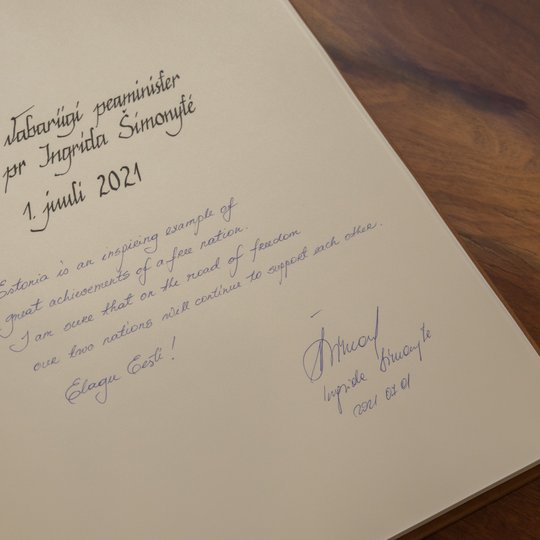 Vabariigi peaminister
pr Ingrida Šimonytė
1. juuli 2021
Estonia is an inspiering example of
great achiesements of a free nation.
I am sure that on the road of freedom
our two nations will continue to support each other.
Elagu Eesti!
Ingrida Šimonytė
2021 07 01